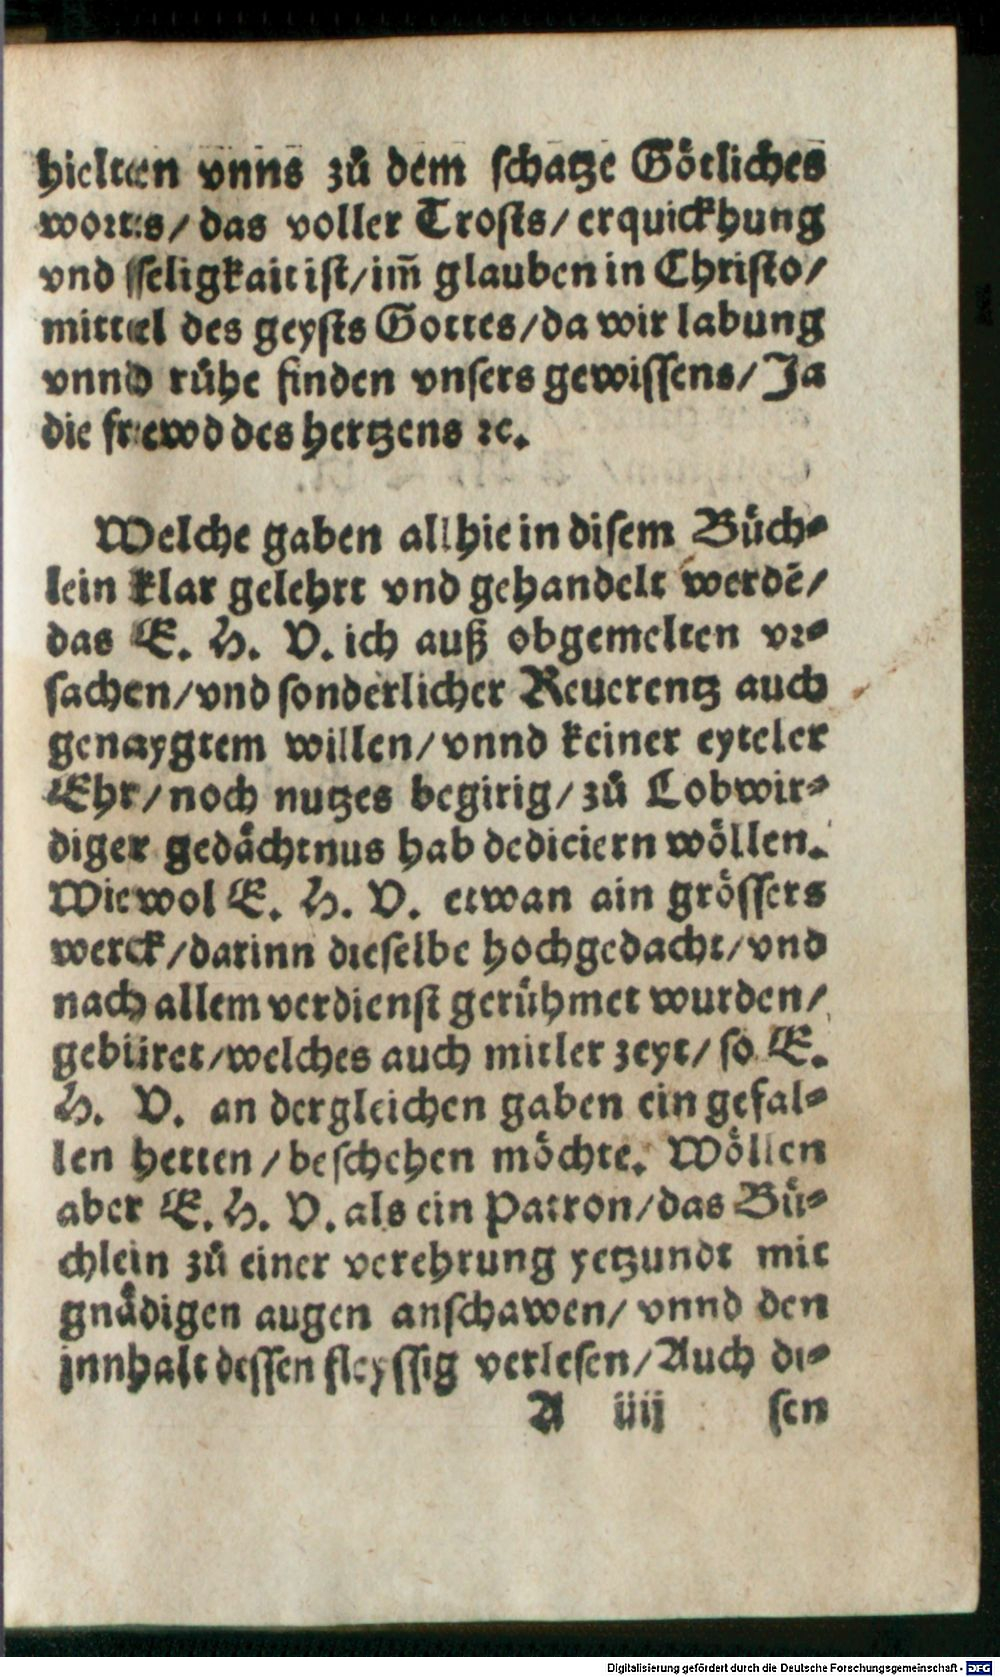 hieltten vnns zů dem schatze Götliches
wortes/ das voller Trosts/ erquickhung
vnd sseligkait ist/ im̃ glauben in Christo/
mittel des geysts Gottes/ da wir labung
vnnd růhe finden vnsers gewissens/ Ja
die frewd des hertzens ꝛc.
Welche gaben allhie in disem Büch⸗
lein klar gelehrt vnd gehandelt werdē/
das E. H. V. ich auß obgemelten vr⸗
sachen/ vnd sonderlicher Reuerentz auch
genaygtem willen/ vnnd keiner eyteler
Ehr/ noch nutzes begirig/ zů Lobwir⸗
diger gedächtnus hab dediciern wöllen.
Wiewol E. H. V. etwan ain grössers
werck/ darinn dieselbe hochgedacht/ vnd
nach allem verdienst gerühmet wurden/
gebüret/ welches auch mitler zeyt/ so E.
H. V. an dergleichen gaben ein gefal⸗
len hetten/ beschehen möchte. Wöllen
aber E. H. V. als ein Patron/ das Bü⸗
chlein zů einer verehrung yetzundt mit
gnädigen augen anschawen/ vnnd den
jnnhalt dessen fleyssig verlesen/ Auch di⸗
A iiij sen
Digitalisierung gefördert durch die Deutsche Forschungsgemeinschaft - DFG